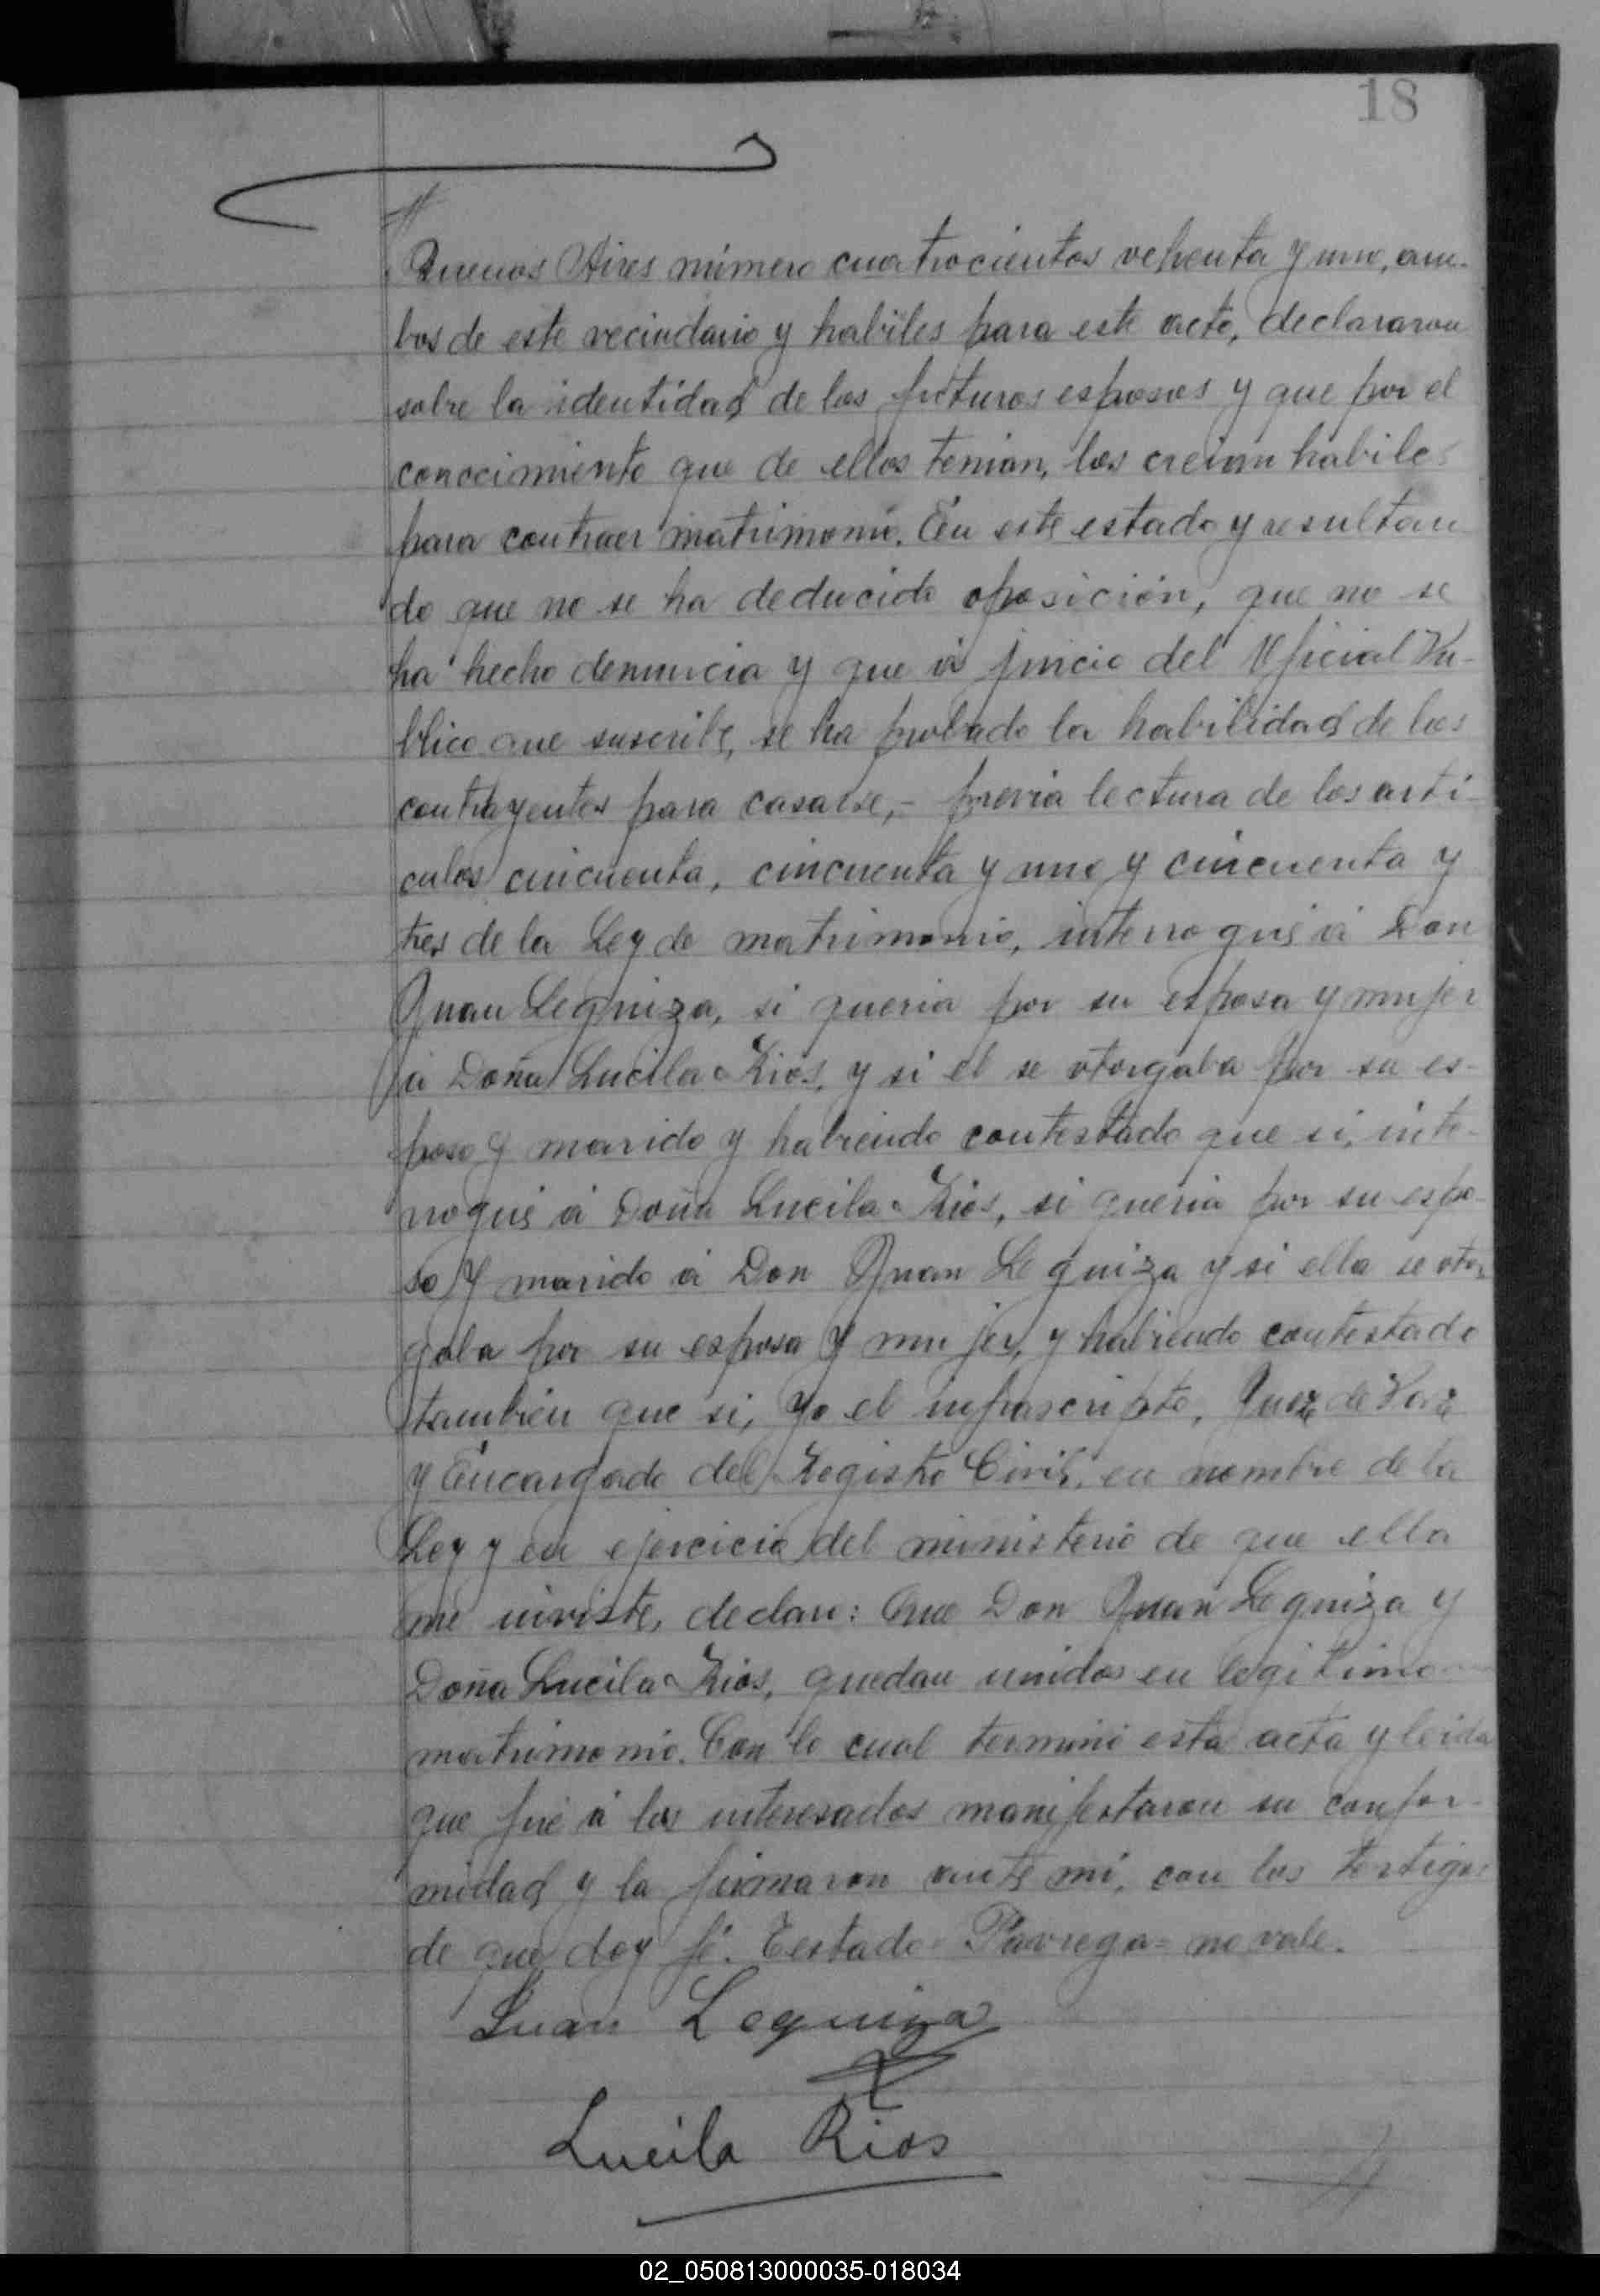 18
Buenos Aires número cuatrocientos setenta y uno, am-
bos de este vecindario y habiles para este acto, declararon
sobre la identidad de los futuros esposos y que por el
conocimiento que de ellos tenian, los creian habiles
para contraer matrimonio. En este estado y resultan
do que no se ha deducido oposición, que no se
ha hecho denuncia y que á juicio del Oficial Pu-
blico que suscribe, se ha probado la habilidad de los
contrayentes para casarse,- previa lectura de los arti-
culos cincuenta, cincuenta y uno y cincuenta y
tres de la Ley de matrimonio, interrogué á Don
Juan Leguiza, si queria por su esposa y mujer
á Doña Lucila Rios, y si el se otorgaba por su es-
poso y marido y habiendo contestado que si, inte-
rrogué á Doña Lucila Rios, si queria por su espo-
so y marido á Don Juan Leguiza y si ella se otor
gaba por su esposa y mujer, y habiendo contestado
tambien que si, yo el infrascripto, Juez de Paz
y Encargado del Registro Civil, en nombre de la
Ley y en ejercicio del ministerio de que ella
me inviste, declaro: Que Don Juan Leguiza y
Doña Lucila Rios, quedan unidos en legitimo
matrimonio. Con lo cual terminó esta acta y leida
que fué á los interesados manifestaron su confor-
midad y la firmaron ante mi, con los testigos
de que doy fé. Testado= = no vale.
Juan Leguiza
Lucila Rios
02_050813000035-018034